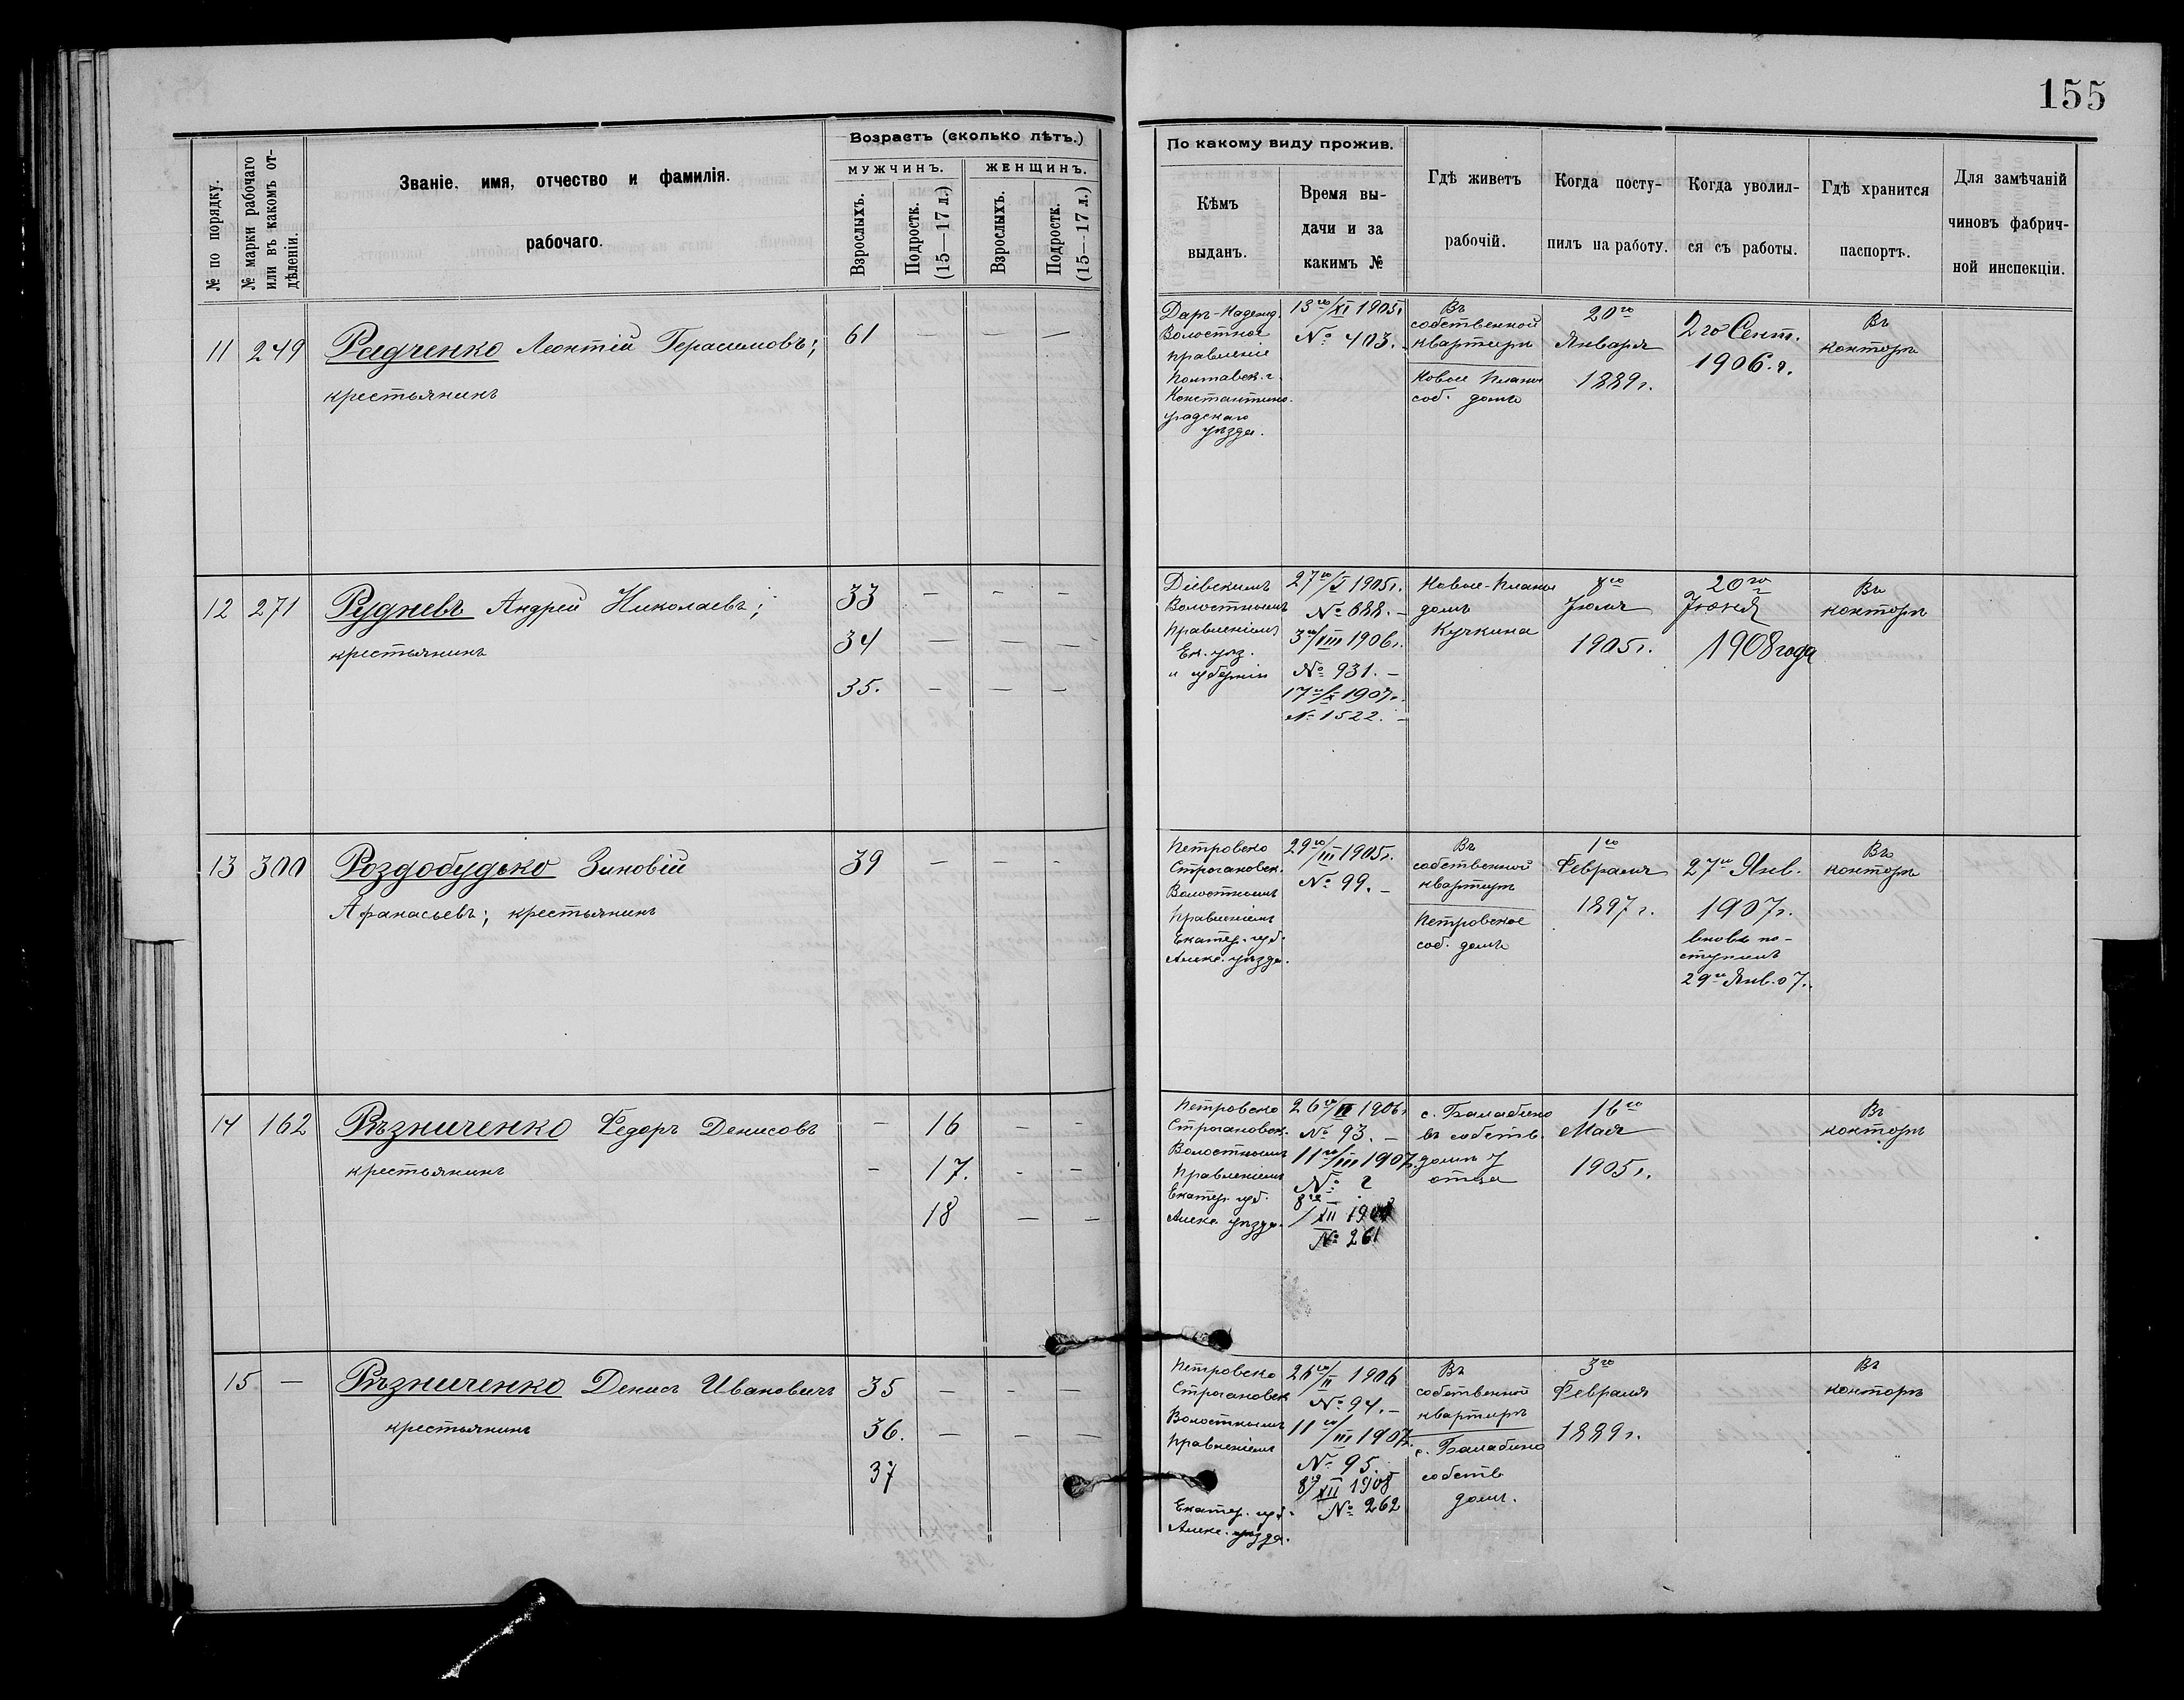 155
№ по порядку.
№ марки рабочаго или въ какомъ отдѣленіи.
Званіе, имя, отчество и фамилія.
рабочаго.
Возрастъ (сколько лѣтъ.)
МУЖЧИНЪ.
ЖЕНЩИНЪ.
Взрослыхъ.
Подростк. (15—17 л.)
Взрослыхъ.
Подростк. (15—17 л.)
По какому виду прожив.
Кѣмъ
выданъ.
Время вы-
дачи и за
какимъ №
Гдѣ живетъ
рабочій.
Когда посту-
пилъ на работу.
Когда уволил-
ся съ работы.
Гдѣ хранится
паспортъ.
Для замѣчаній
чиновъ фабрич-
ной инспекціи.
11 249 Радченко Леонтій Герасимовъ; 61 — — —
крестьянинъ
Даръ-Надежд.
Волостное
правленіе
Полтавск. г.
Константино-
градскаго
уѣзда.
13го/XI 1905г.
№ 403. -
Въ
собственной
квартирѣ
Новые Планы
соб. домъ
20го
Января
1889 г.
2го Сент.
1906. г.
Въ
конторѣ
12 271 Рудневъ Андрей Николаевъ; 33 — — —
крестьянинъ 34 — — —
35. — — —
Діевскимъ
Волостнымъ
Правленіемъ
Ек. уѣз.
и губерніи
27го/X 1905г.
№ 688. -
3го/VIII 1906г.
№ 931. -
17го/X 1907г.
№ 1522. -
Новые-Планы
домъ
Кучкина
8го
Іюля
1905 г.
20го
Іюня
1908 года
Въ
конторѣ
13 300 Роздобудько Зиновій 39 — — —
Афанасьевъ; крестьянинъ
Петровско
Строгановск.
Волостнымъ
Правленіемъ
Екатер. губ.
Алекс. уѣзда.
29го/III 1905г.
№ 99. -
Въ
собственной
квартирѣ
Петровское
соб. домъ
1го
Февраля
1897 г.
27го Янв.
1907г.
вновь по-
ступилъ
29го Янв. 07.
Въ
конторѣ
14 162 Рѣзниченко Федоръ Денисовъ — 16 — —
крестьянинъ — 17. - —
18 — —
Петровско
Строгановск.
Волостнымъ
Правленіемъ
Екатер. губ.
Алекс. уѣзда.
26го/II 1906г.
№ 93. -
11го/III 1907г.
№ ?
8го
/XII 190
№ 261
с. Балабино
въ собств.
домѣ у
отца
16го
Мая
1905 г.
Въ
конторѣ
15 — Рѣзниченко Денисъ Ивановичъ 35 — — —
крестьянинъ 36. — — —
37
Петровско
Строгановск.
Волостнымъ
Правленіемъ
Екатер. губ.
Алекс. уѣзда.
26го/II 1906
№ 94. -
11го/III 1907г.
№ 95
8го/XII 1908
№ 262
Въ
собственной
квартирѣ
с. Балабино
собств
домъ.
3го
Февраля
1889 г.
Въ
конторѣ